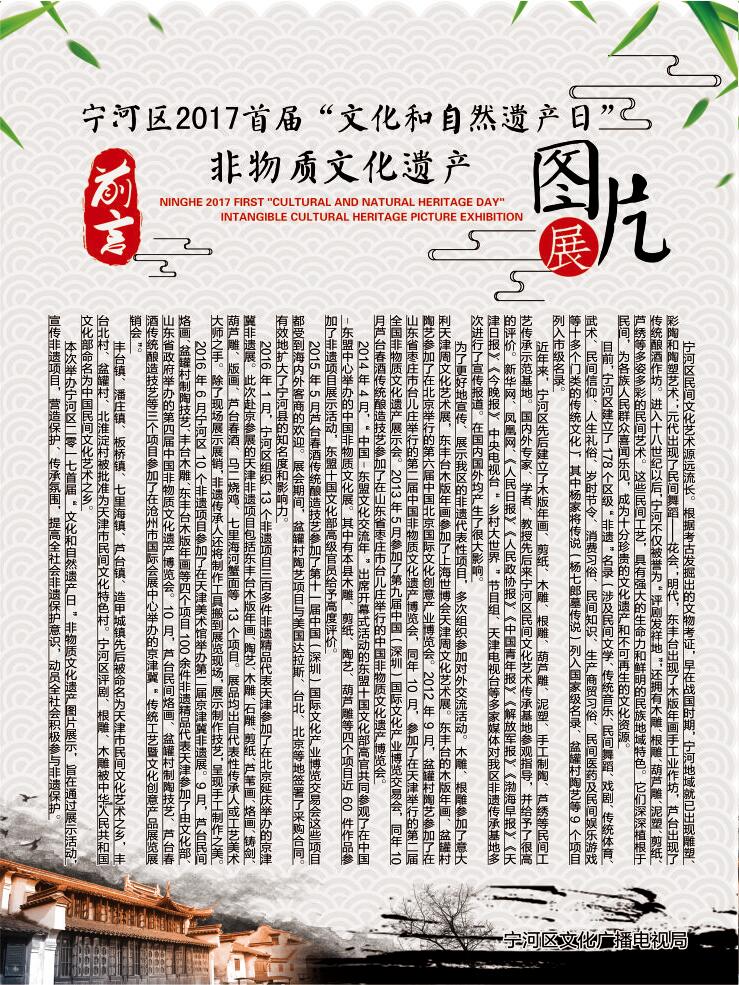 宁河区2017首届“文化和自然遗产日”
非物质文化遗产
图片展
前言
NINGHE 2017 FIRST "CULTURAL AND NATURAL HERITAGE DAY"
INTANGIBLE CULTURAL HERITAGE PICTURE EXHIBITION
宁河区民间文化艺术源远流长。根据考古发掘出的文物考证，早在战国时期，宁河地域就已出现雕塑、
彩陶和陶塑艺术；元代出现了民间舞蹈——花会，明代，东丰台出现了木版年画手工业作坊，芦台出现了
传统酿酒作坊。进入十八世纪以后，宁河不仅被誉为“评剧发祥地”，还拥有木雕、根雕、葫芦雕、泥塑、剪纸、
芦绣等多姿多彩的民间艺术。这些民间工艺，具有强大的生命力和鲜明的民族地域特色。它们深深植根于
民间，为各族人民群众喜闻乐见，成为十分珍贵的文化遗产和不可再生的文化资源。
目前，宁河区建立了178个区级“非遗”名录（涉及民间文学、传统音乐、民间舞蹈、戏剧、传统体育、
武术、民间信仰、人生礼俗、岁时节令、消费习俗、民间知识、生产商贸习俗、民间医药及民间娱乐游戏
等十多个门类的传统文化），其中杨家将传说（杨七郎墓传说）列入国家级名录、盆罐村陶艺等9个项目
列入市级名录。
近年来，宁河区先后建立了木版年画、剪纸、木雕、根雕、葫芦雕、泥塑、手工制陶、芦绣等民间工
艺传承示范基地。国内外专家、学者、教授先后来宁河区民间文化艺术传承基地参观指导，并给予了很高
的评价。新华网、凤凰网、《人民日报》、《人民政协报》、《中国青年报》、《解放军报》、《渤海早报》、《天
津日报》、《今晚报》、中央电视台“乡村大世界”节目组、天津电视台等多家媒体对我区非遗传承基地多
次进行了宣传报道。在国内国外均产生了很大影响。
为了更好地宣传、展示我区的非遗代表性项目，多次组织参加对外交流活动。木雕、根雕参加了意大
利天津周文化艺术展，东丰台木版年画参加了上海世博会天津周文化艺术展。东丰台的木版年画、盆罐村
陶艺参加了在北京举行的第六届中国北京国际文化创意产业博览会。2012年9月，盆罐村陶艺参加了在
山东省枣庄市台儿庄举行的第二届中国非物质文化遗产博览会，同年10月，参加了在天津举行的第二届
全国非物质文化遗产展示会。2013年5月参加了第九届中国（深圳）国际文化产业博览交易会，同年10
月芦台春酒传统酿造技艺参加了在山东省枣庄市台儿庄举办的中国非物质文化遗产博览会。
2014年4月，“中国-东盟文化交流年”出席开幕式活动的东盟十国文化部高官共同参观了在中国
-东盟中心举办的中国非物质文化展。其中有本县木雕、剪纸、陶艺、葫芦雕等四个项目近60件作品参
加了非遗项目展示活动，东盟十国文化部高级官员给予高度评价。
2015年5月芦台春酒传统酿造技艺参加了第十一届中国（深圳）国际文化产业博览交易会这些项目
都受到海内外客商的欢迎。展会期间，盆罐村陶艺项目与美国达拉斯、台北、北京等地签署了采购合同。
有效地扩大了宁河县的知名度和影响力。
2016年1月，宁河区组织13个非遗项目三百多件非遗精品代表天津参加了在北京延庆举办的京津
冀非遗展。此次赴京参展的天津非遗项目包括东丰台木版年画、陶艺、木雕、石雕、剪纸、芦苇画、烙画、铸剑、
葫芦雕、版画、芦台春酒、乌二烧鸡、七里海河蟹面等13个项目。展品均出自代表性传承人或工艺美术
大师之手。除了现场展示展销，非遗传承人还将制作工具搬到展览现场，展示制作技艺，呈现手工制作之美。
2016年6月宁河区10个非遗项目参加了在天津美术馆举办第二届京津冀非遗展。9月，芦台民间
烙画、盆罐村制陶技艺、丰台木雕、东丰台木版年画等四个项目100余件非遗精品代表天津参加了由文化部、
山东省政府举办的第四届中国非物质文化遗产博览会。10月，芦台民间烙画、盆罐村制陶技艺、芦台春
酒传统酿造技艺等三个项目参加了在沧州市国际会展中心举办的京津冀“传统工艺暨文化创意产品展览展
销会。”
丰台镇、潘庄镇、板桥镇、七里海镇、芦台镇、造甲城镇先后被命名为天津市民间文化艺术之乡，丰
台北村、盆罐村、北淮淀村被批准为天津市民间文化特色村。宁河区评剧、根雕、木雕被中华人民共和国
文化部命名为中国民间文化艺术之乡。
本次举办宁河区二零一七首届“文化和自然遗产日”非物质文化遗产图片展示，旨在通过展示活动，
宣传非遗项目，营造保护、传承氛围，提高全社会非遗保护意识，动员全社会积极参与非遗保护。
宁河区文化广播电视局